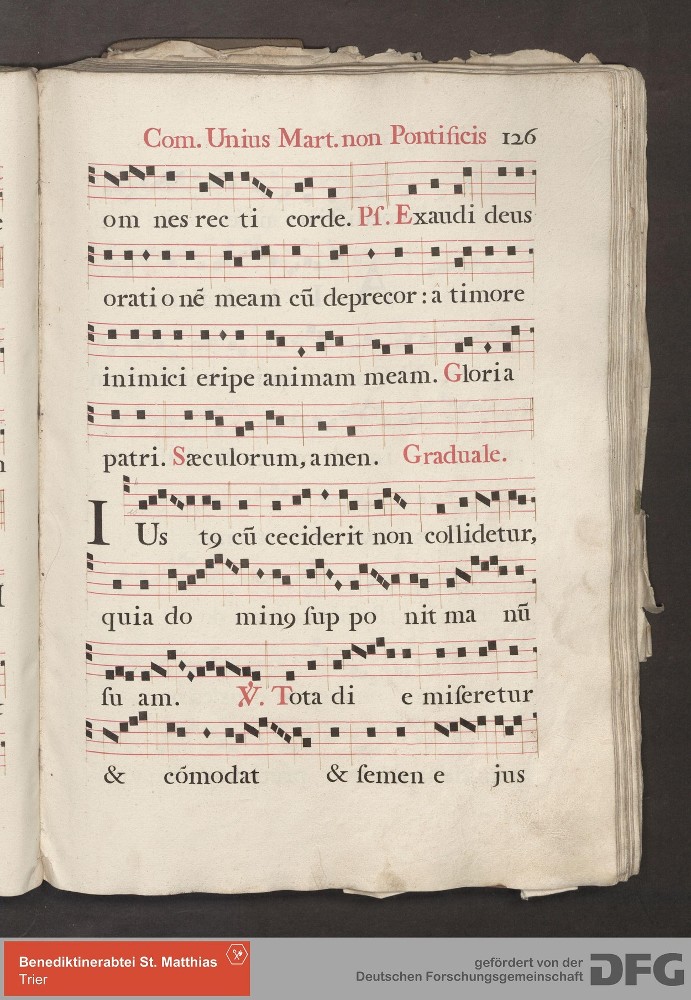 Com. Unius Mart. non Pontificis 126
om nes rec ti corde. Pſ. Exaudi deus
orati o nē meam cū deprecor : â timore
inimici eripe animam meam. Gloria
patri. Sæculorum, amen. Graduale.
IUs t9 cū ceciderit non collidetur,
quia do min9 ſup po nit ma nū
ſu am. ℣. Tota di e miſeretur
& cōmodat & ſemen e jus
Benediktinerabtei St. Matthias
Trier
gefördert von der
Deutschen Forschungsgemeinschaft DFG